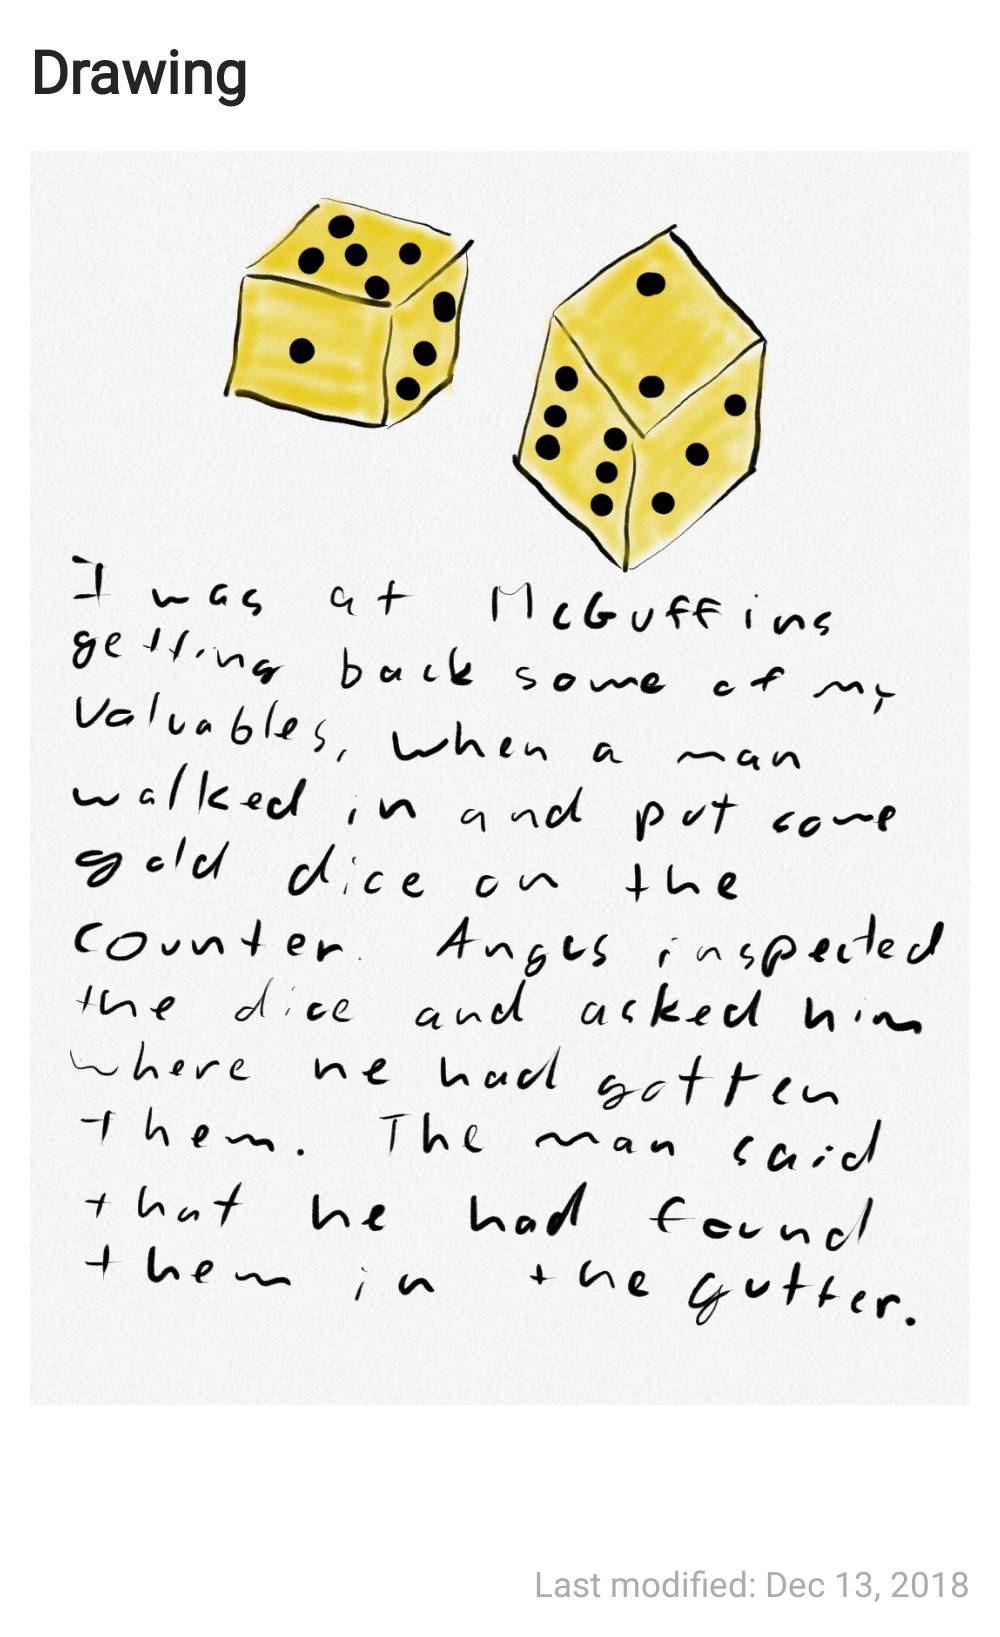 Drawing
I was at McGuffins
getting back some of my
valuables, when a man
walked in and put some
gold dice on the
counter. Angus inspected
the dice and asked him
where he had gotten
them. The man said
that he had found
them in the gutter.
Last modified: Dec 13, 2018